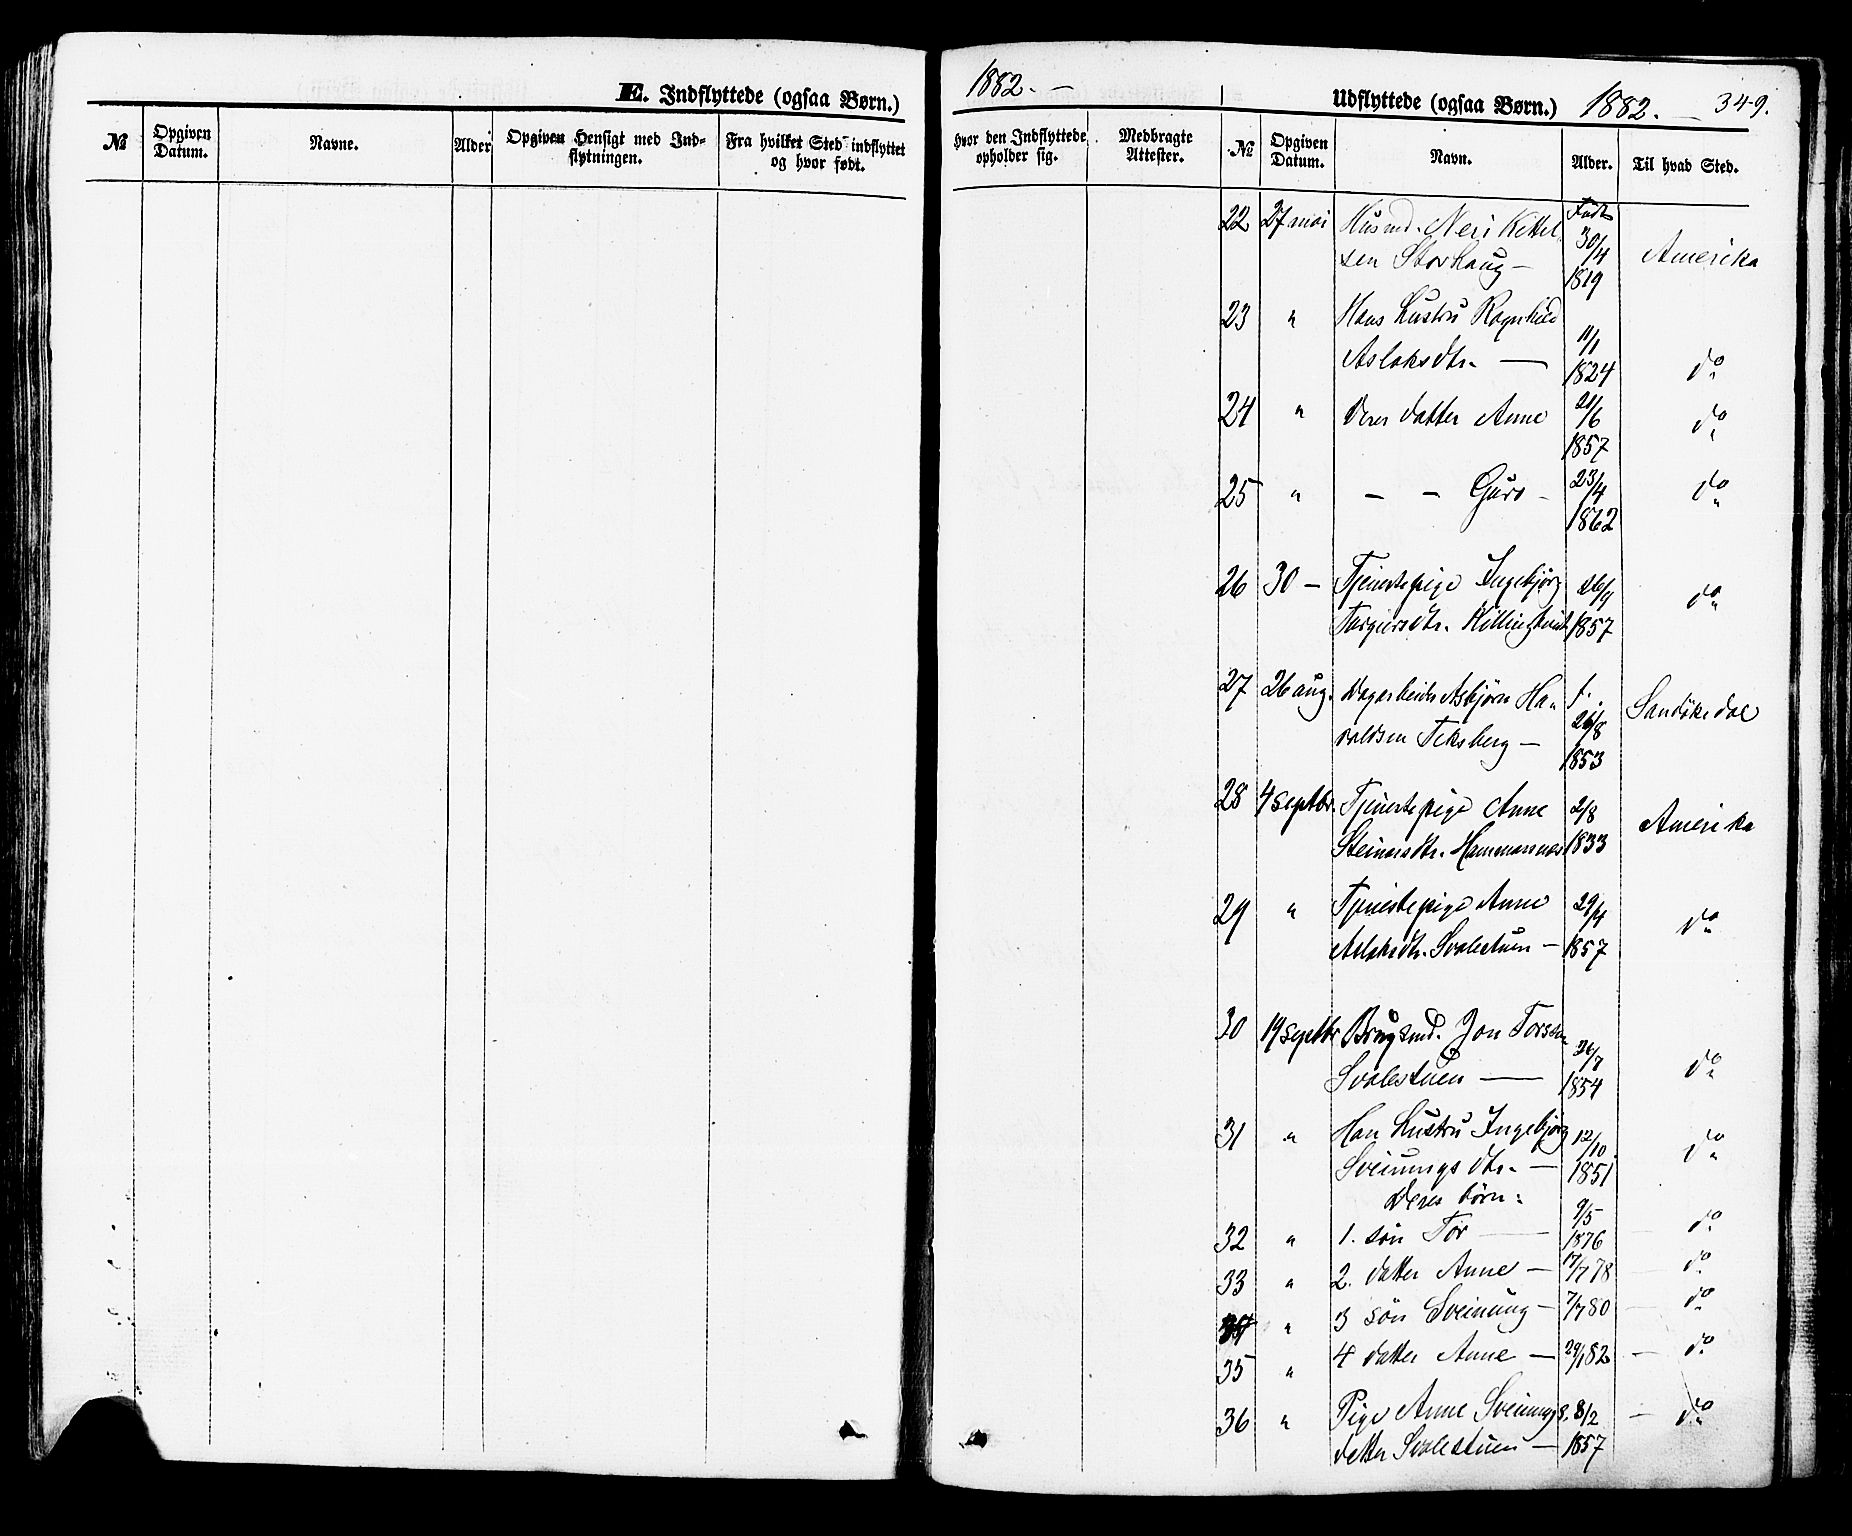 E. Indflyttede (ogsaa Børn.)
№ Opgiven Datum. Navne. Alder Opgiven Hensigt med Indflytningen. Fra hvilket Sted indflyttet og hvor født.
1882. — Udflyttede (ogsaa Børn.) 1882. — 349.
hvor den Indflyttede opholder sig. Medbragte Attester. № Opgiven Datum. Navn. Alder. Til hvad Sted.
22 27 mai Husmd. Neri Kittel- Født
sen Storhaug — 30/4 1819 Amerika
23 " Hans Hustru Ragnhild
Aslaksdtr. — 11/1 1824 do
24 " Deres datter Anne 21/6 1857 do
25 " — — Guro - 23/4 1862 do
26 30 — Tjenestepige Ingebjørg
Targjersdtr. 1857 do
27 26 aug. Dagarbeider Asbjørn Ha-
valdsen Teksberg — f. 26/8 1853 Sandøkedal
28 4 septbr. Tjenestepige Anne 2/8
Steinarsdtr. Hammarnes 1833 Amerika
29 " Tjenestepige Anne 29/4
Aslaksdtr. Svalestuen — 1857 do
30 19 septbr Brugsmd. Jon Torssen
Svalestuen — 26/7 1854 do
31 " Han Hustru Ingebjørg 12/10
Sveinungsdtr. — 1851 do
Deres børn:
32 " 1. søn Tor — 9/5 1876 — do
33 " 2. datter Anne — 17/7 78 — do
34 " 3 søn Sveinung — 7/7 80 — do
35 " 4 datter Anne — 29/1 82 — do
36 " Pige Anne Sveinungs- 8/2 — do
datter Svalestuen — 1857